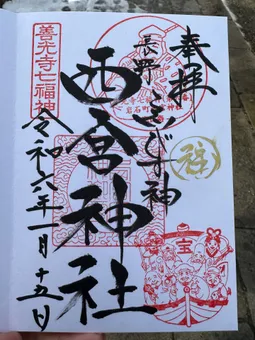 奉拝
長野ゑびす神
西宮神社
令和六年一月十五日
善光寺七福神
宝